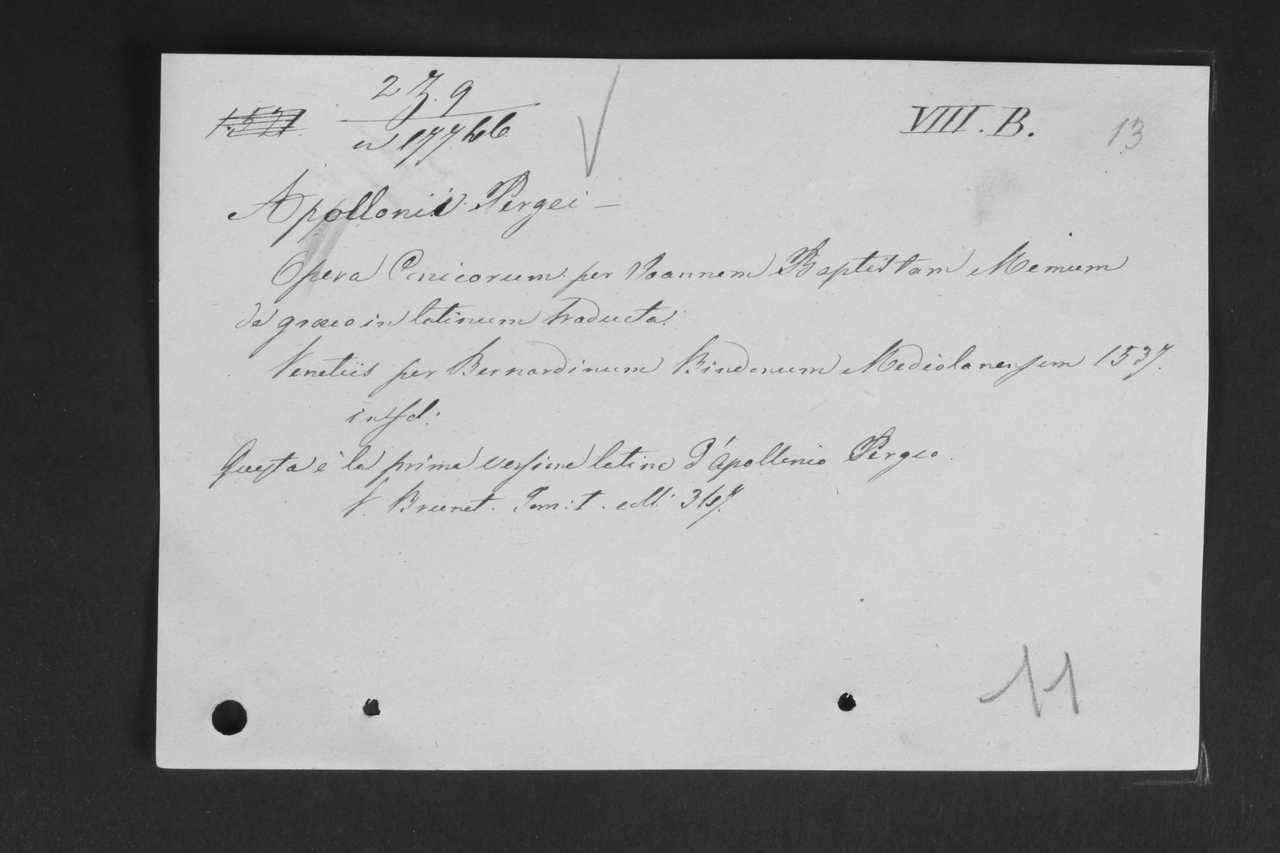 1537
2 Z. 9
VIII. B.
13
Apollonii Pergei —
Opera Conicorum per Joannem Baptistam Memum
de graeco in latinum traducta.
Venetiis per Bernardinum Bindonum Mediolanensem 1537.
in fol:
Questa è la prima versione latina d'Apollonio Pergeo.
V. Brunet. Tom: I. coll: 347.
11